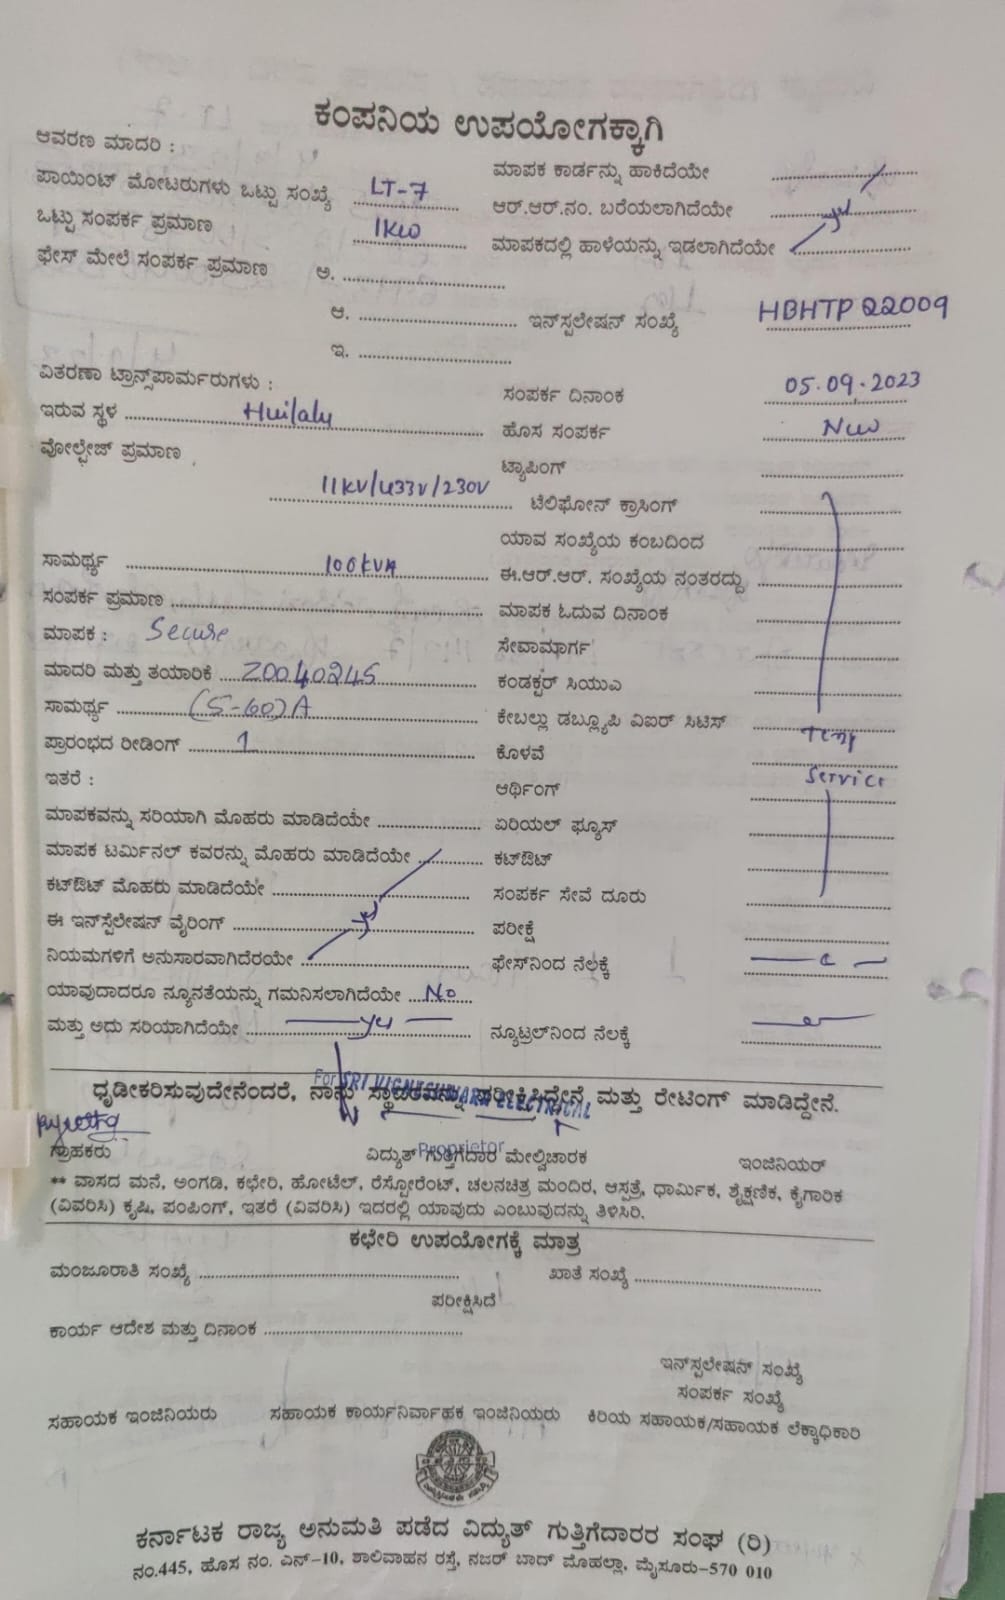 ಕಂಪನಿಯ ಉಪಯೋಗಕ್ಕಾಗಿ
ಆವರಣ ಮಾದರಿ :
ಮಾಪಕ ಕಾರ್ಡನ್ನು ಹಾಕಿದೆಯೇ ....................
ಪಾಯಿಂಟ್ ಮೋಟರುಗಳು ಒಟ್ಟು ಸಂಖ್ಯೆ LT-7
ಆರ್.ಆರ್.ನಂ. ಬರೆಯಲಾಗಿದೆಯೇ ....................
ಒಟ್ಟು ಸಂಪರ್ಕ ಪ್ರಮಾಣ 1KW
ಮಾಪಕದಲ್ಲಿ ಹಾಳೆಯನ್ನು ಇಡಲಾಗಿದೆಯೇ ....................
ಫೇಸ್ ಮೇಲೆ ಸಂಪರ್ಕ ಪ್ರಮಾಣ ಅ. ....................
ಆ. ....................
ಇನ್‌ಸ್ಪಲೇಷನ್ ಸಂಖ್ಯೆ HBHTP 22009
ಇ. ....................
ವಿತರಣಾ ಟ್ರಾನ್ಸ್‌ಪಾರ್ಮರುಗಳು :
ಸಂಪರ್ಕ ದಿನಾಂಕ 05.09.2023
ಇರುವ ಸ್ಥಳ Huilaly
ಹೊಸ ಸಂಪರ್ಕ New
ವೋಲ್ಟೇಜ್ ಪ್ರಮಾಣ
ಟ್ಯಾಪಿಂಗ್ ....................
11KV/433V/230V
ಟೆಲಿಫೋನ್ ಕ್ರಾಸಿಂಗ್ ....................
ಯಾವ ಸಂಖ್ಯೆಯ ಕಂಬದಿಂದ ....................
ಸಾಮರ್ಥ್ಯ 100KVA
ಈ.ಆರ್.ಆರ್. ಸಂಖ್ಯೆಯ ನಂತರದ್ದು ....................
ಸಂಪರ್ಕ ಪ್ರಮಾಣ ....................
ಮಾಪಕ ಓದುವ ದಿನಾಂಕ ....................
ಮಾಪಕ : Secure
ಸೇವಾಮಾರ್ಗ ....................
ಮಾದರಿ ಮತ್ತು ತಯಾರಿಕೆ Z0040245
ಕಂಡಕ್ಟರ್ ಸಿಯುಎ ....................
ಸಾಮರ್ಥ್ಯ (5-60)A
ಕೇಬಲ್ಲು ಡಬ್ಲ್ಯೂಪಿ ವಿಐರ್ ಸಿಟಿಸ್ ....................
ಪ್ರಾರಂಭದ ರೀಡಿಂಗ್ 1
ಕೊಳವೆ Temp
ಇತರೆ :
ಆರ್ಥಿಂಗ್ Service
ಮಾಪಕವನ್ನು ಸರಿಯಾಗಿ ಮೊಹರು ಮಾಡಿದೆಯೇ ....................
ಏರಿಯಲ್ ಫ್ಯೂಸ್ ....................
ಮಾಪಕ ಟರ್ಮಿನಲ್ ಕವರನ್ನು ಮೊಹರು ಮಾಡಿದೆಯೇ ....................
ಕಟ್‌ಔಟ್ ....................
ಕಟ್‌ಔಟ್ ಮೊಹರು ಮಾಡಿದೆಯೇ ....................
ಸಂಪರ್ಕ ಸೇವೆ ದೂರು ....................
ಈ ಇನ್‌ಸ್ಪೆಲೇಷನ್ ವೈರಿಂಗ್ ....................
ಪರೀಕ್ಷೆ ....................
ನಿಯಮಗಳಿಗೆ ಅನುಸಾರವಾಗಿದೆರಯೇ ....................
ಫೇಸ್‌ನಿಂದ ನೆಲಕ್ಕೆ
ಯಾವುದಾದರೂ ನ್ಯೂನತೆಯನ್ನು ಗಮನಿಸಲಾಗಿದೆಯೇ No
ಮತ್ತು ಅದು ಸರಿಯಾಗಿದೆಯೇ yes
ನ್ಯೂಟ್ರಲ್‌ನಿಂದ ನೆಲಕ್ಕೆ
For SRI VIGNESHWARA ELECTRICAL
ಧೃಡೀಕರಿಸುವುದೇನೆಂದರೆ, ನಾನು ಸ್ಥಾವರವನ್ನು ಪರೀಕ್ಷಿಸಿದ್ದೇನೆ ಮತ್ತು ರೇಟಿಂಗ್ ಮಾಡಿದ್ದೇನೆ.
Proprietor
ಗ್ರಾಹಕರು ವಿದ್ಯುತ್ ಗುತ್ತಿಗೆದಾರ ಮೇಲ್ವಿಚಾರಕ ಇಂಜಿನಿಯರ್
** ವಾಸದ ಮನೆ, ಅಂಗಡಿ, ಕಛೇರಿ, ಹೋಟೆಲ್, ರೆಸ್ಟೋರೆಂಟ್, ಚಲನಚಿತ್ರ ಮಂದಿರ, ಆಸ್ಪತ್ರೆ, ಧಾರ್ಮಿಕ, ಶೈಕ್ಷಣಿಕ, ಕೈಗಾರಿಕ
(ವಿವರಿಸಿ) ಕೃಷಿ, ಪಂಪಿಂಗ್, ಇತರೆ (ವಿವರಿಸಿ) ಇದರಲ್ಲಿ ಯಾವುದು ಎಂಬುವುದನ್ನು ತಿಳಿಸಿರಿ.
ಕಛೇರಿ ಉಪಯೋಗಕ್ಕೆ ಮಾತ್ರ
ಮಂಜೂರಾತಿ ಸಂಖ್ಯೆ .................... ಖಾತೆ ಸಂಖ್ಯೆ ....................
ಪರೀಕ್ಷಿಸಿದೆ
ಕಾರ್ಯ ಆದೇಶ ಮತ್ತು ದಿನಾಂಕ ....................
ಇನ್‌ಸ್ಪಲೇಷನ್ ಸಂಖ್ಯೆ
ಸಂಪರ್ಕ ಸಂಖ್ಯೆ
ಸಹಾಯಕ ಇಂಜಿನಿಯರು ಸಹಾಯಕ ಕಾರ್ಯನಿರ್ವಾಹಕ ಇಂಜಿನಿಯರು ಕಿರಿಯ ಸಹಾಯಕ/ಸಹಾಯಕ ಲೆಕ್ಕಾಧಿಕಾರಿ
ಕರ್ನಾಟಕ ರಾಜ್ಯ ಅನುಮತಿ ಪಡೆದ ವಿದ್ಯುತ್ ಗುತ್ತಿಗೆದಾರರ ಸಂಘ (ರಿ)
ನಂ.445, ಹೊಸ ನಂ. ಎನ್-10, ಶಾಲಿವಾಹನ ರಸ್ತೆ, ನಜರ್ ಬಾದ್ ಮೊಹಲ್ಲಾ, ಮೈಸೂರು-570 010